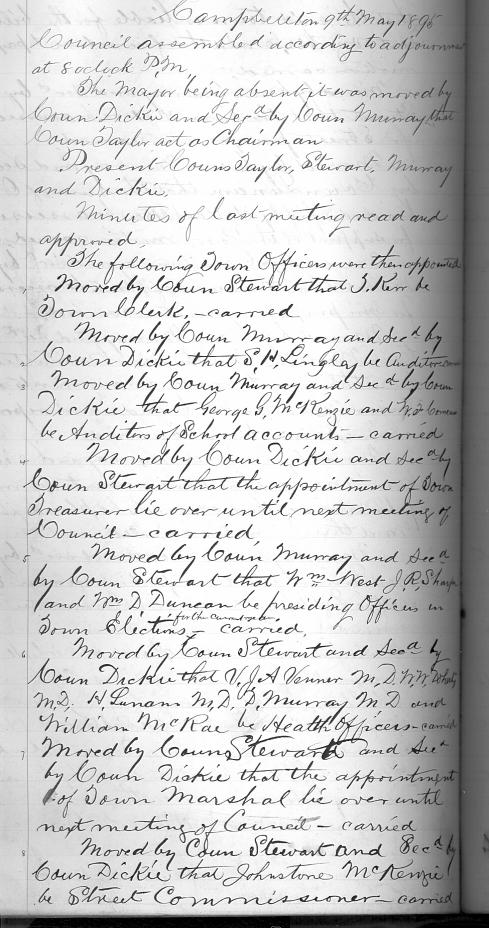 Campbellton 9th May 1895
Council assembled according to adjournment
at 8 oclock P.M.
The Mayor being absent it was moved by
Coun Dickie and Secd by Coun Murray that
Coun Taylor act as Chairman
Present Couns Taylor, Stewart, Murray
and Dickie
Minutes of last meeting read and
approved.
The following Town Officers were then appointed
1 Moved by Coun Stewart that J. Kerr be
Town Clerk, – carried
Moved by Coun Murray and Secd by
2 Coun Dickie that S, H, Lingley be Auditor
3 Moved by Coun Murray and Secd by Coun
Dickie that George G, McKenzie and
be Auditors of School accounts – carried
4 Moved by Coun Dickie and Secd by
Coun Stewart that the appointment of Town
Treasurer lie over until next meeting of
Council – carried,
5 Moved by Coun, Murray and Secd
by Coun Stewart that Wm West J, R, Sharpe
and Wm D, Duncan be presiding Officers in
Town Elections for the current year – carried,
6 Moved by Coun Stewart and Secd by
Coun Dickie that V, J A Venner M, D, W, W, Doherty
M.D. H, Lunam M, D, D, Murray M D and
William McRae be Health Officers – carried
7 Moved by Coun Stewart and Secd
by Coun Dickie that the appointment
of Town Marshal lie over until
next meeting of Council – carried
8 Moved by Coun Stewart and Secd by
Coun Dickie that Johnstone McKenzie
be Street Commissioner – carried